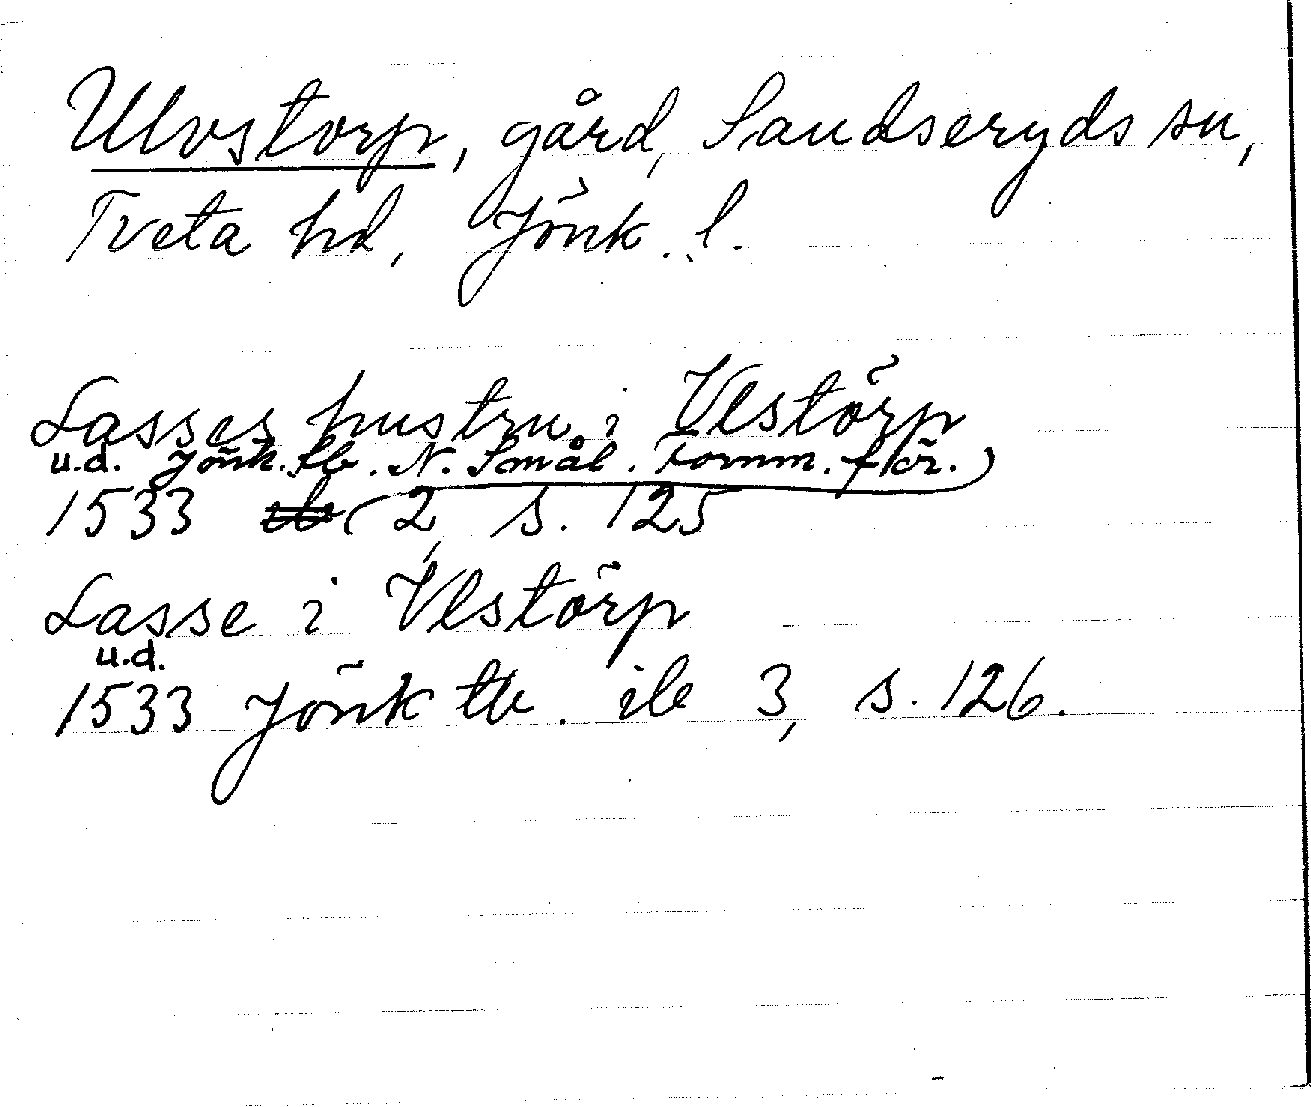 Ulvstorp, gård, Sandseryds sn,
Tveta hd, Jönk. l.
Lasses hustru i Vlstörp
u.d. Jönk. tb. N. Smål. Fornm. för.)
1533 (2, s. 125
Lasse i Vlstörp
u.d.
1533 Jönk tb. ib 3, s. 126.